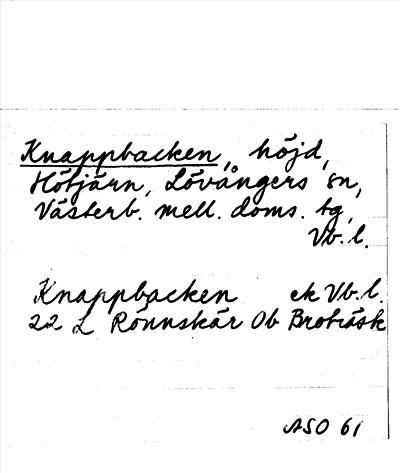 Knappbacken, höjd,
Hötjärn, Lövångers sn,
Västerb. mell. doms. tg,
Vb. l.
Knappbacken ek Vb. l.
22 L Rönnskär Ob Broträsk
ASO 61